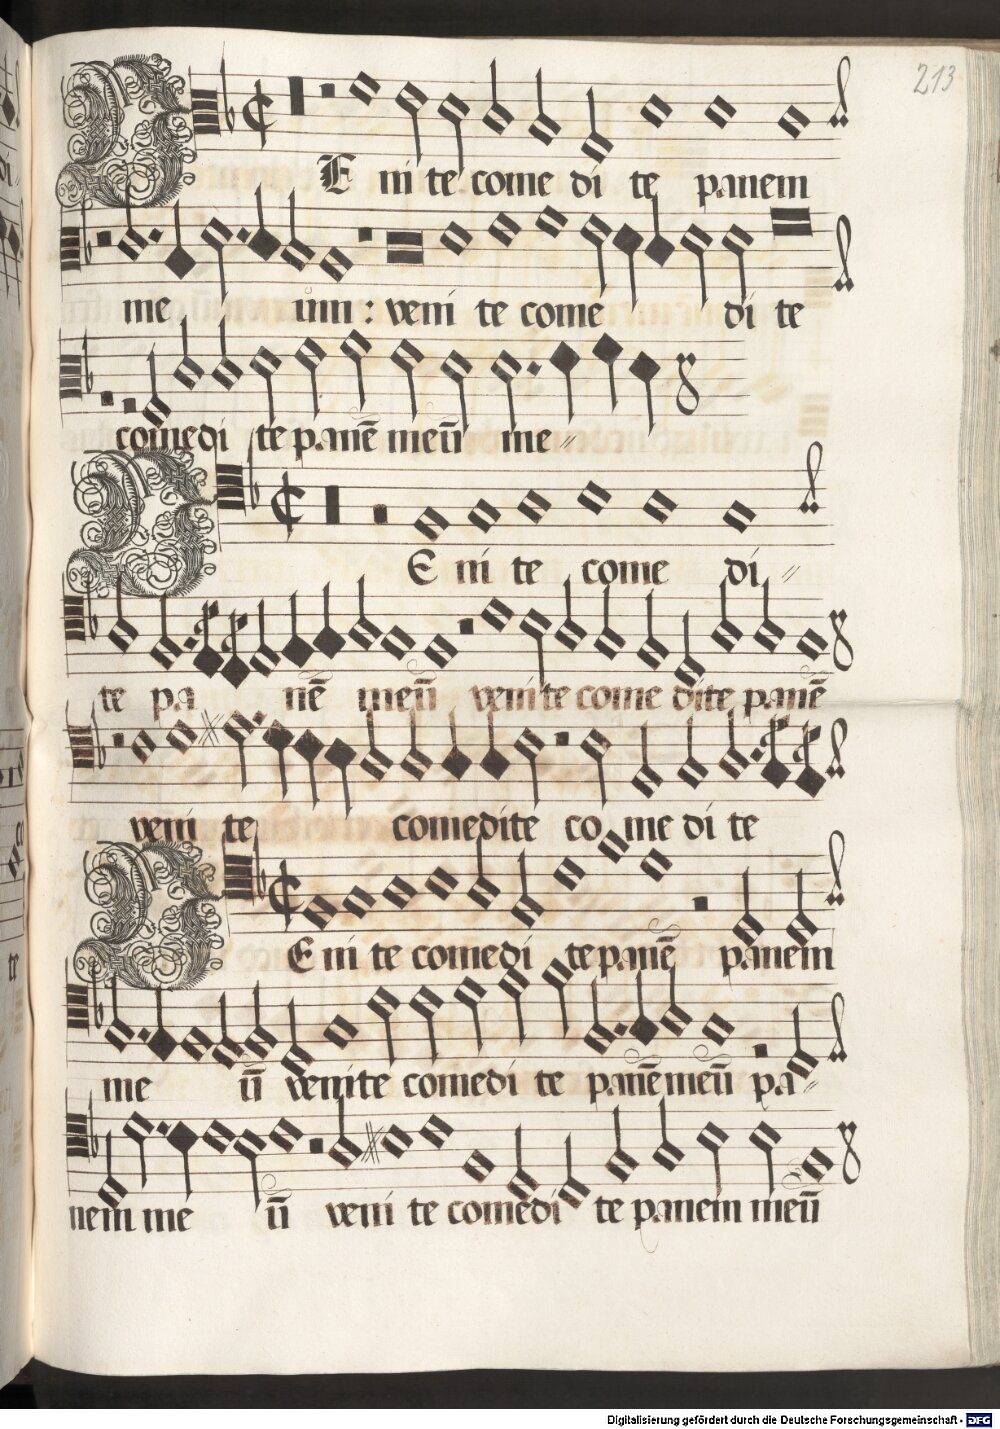 213
VE ni te come di te panem
me um : veni te come di te
comedi te panē meū me〃
VE ni te come di 〃
te pa nē meū venite come dite panē
veni te comedite co me di te
VE ni te comedi te panē panem
me ū venite comedi te panē meū pa〃
nem me ū veni te comedi te panem meū
di
te
Digitalisierung gefördert durch die Deutsche Forschungsgemeinschaft - DFG